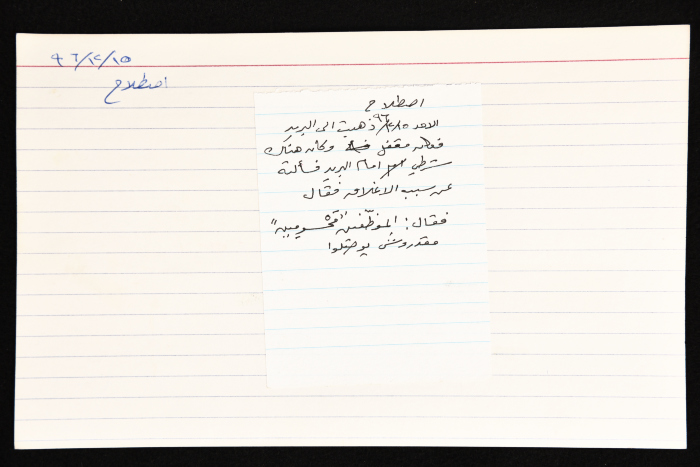 ٩٦/١٢/١٥
اصطلاح
اصطلاح
الاحد ٩٦/١٢/١٥ ذهبت الى البريد
فكانه مقفل وكان هناك
شرطي امام البريد فسألته
عن سبب الاغلاق فقال
فقال: الموظفين "محسومين"
مقدروش يوصلوا